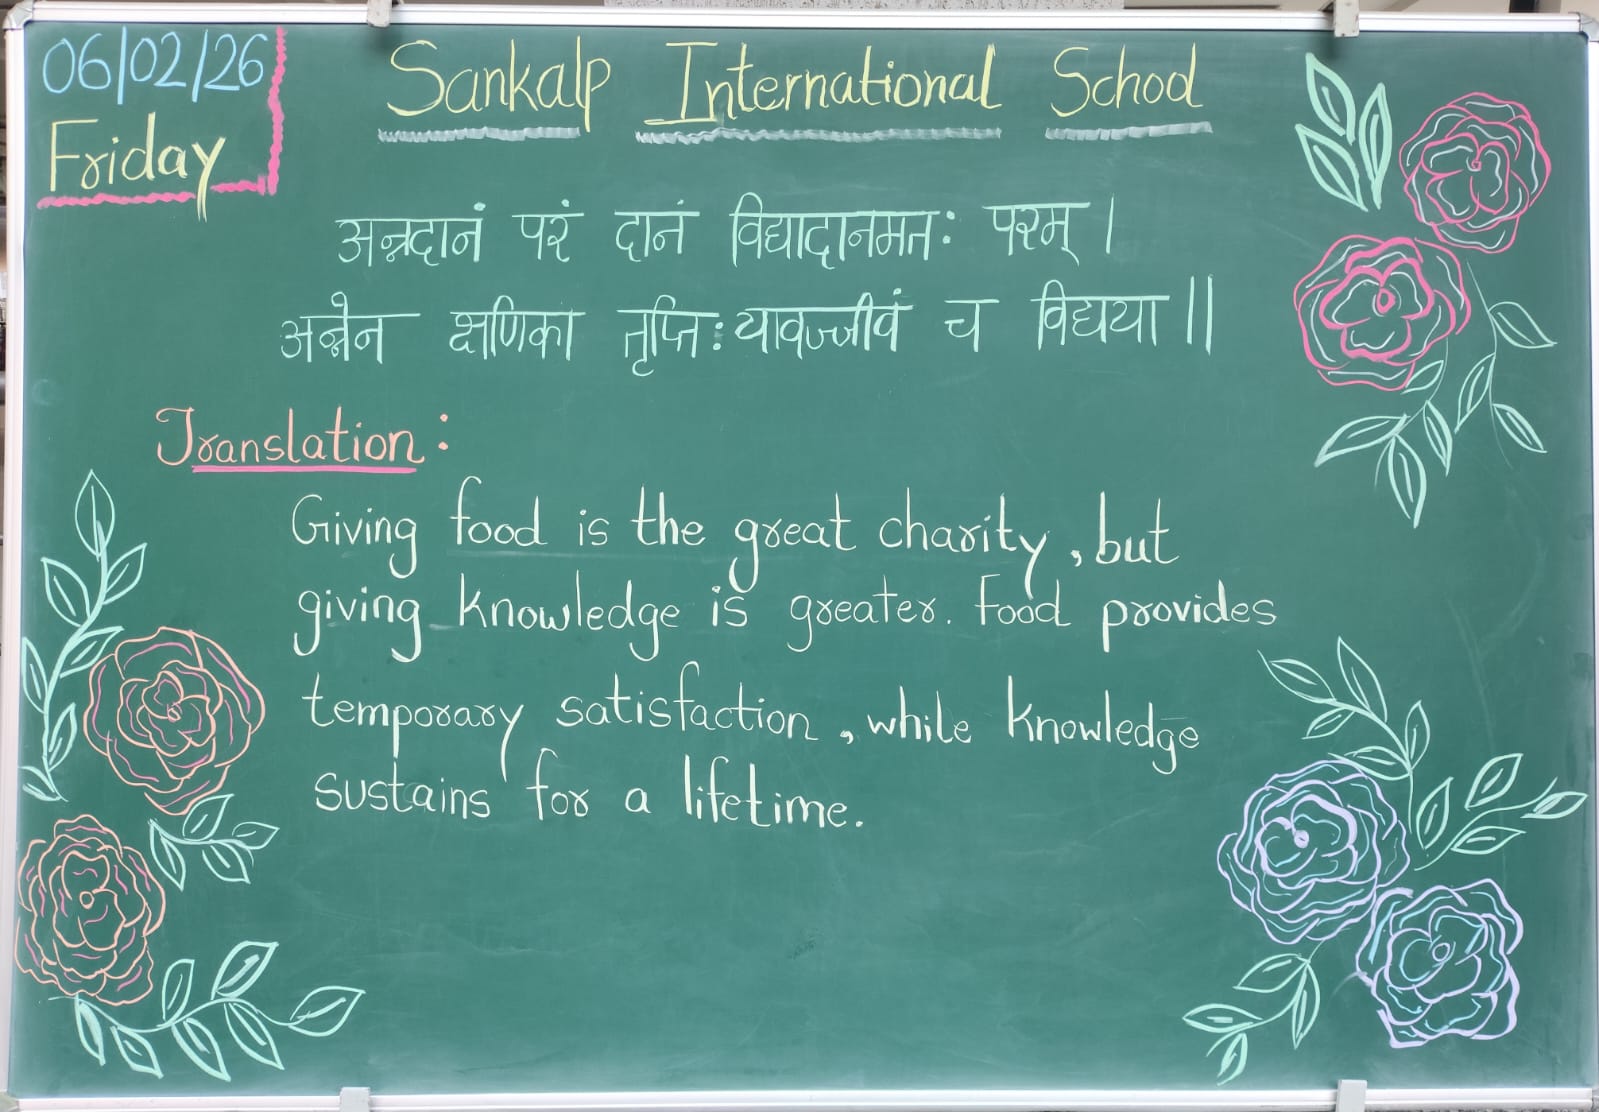 06/02/26
Friday
Sankalp International School
अन्नदानं परं दानं विद्यादानमतः परम् ।
अन्नेन क्षणिका तृप्तिः यावज्जीवं च विद्यया ॥
Translation :
Giving food is the great charity, but
giving knowledge is greater. Food provides
temporary satisfaction, while knowledge
sustains for a lifetime.